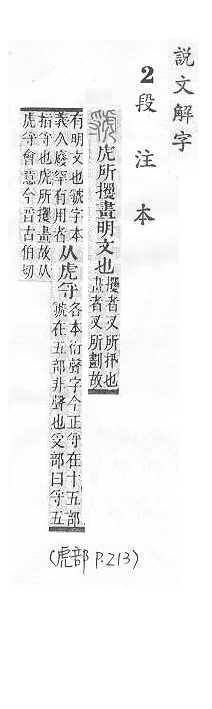 說文解字
2段注本
虢虎所攫畫明文也攫者叉所扟也
畫者叉所劃故
有明文也虢字本
義久廢罕有用者
从虎寽
各本衍聲字今正寽在十五部
虢在五部非聲也𠬪部曰寽五
指寽也虎所攫畫故从
虎寽會意今音古伯切
(虎部 P.213)